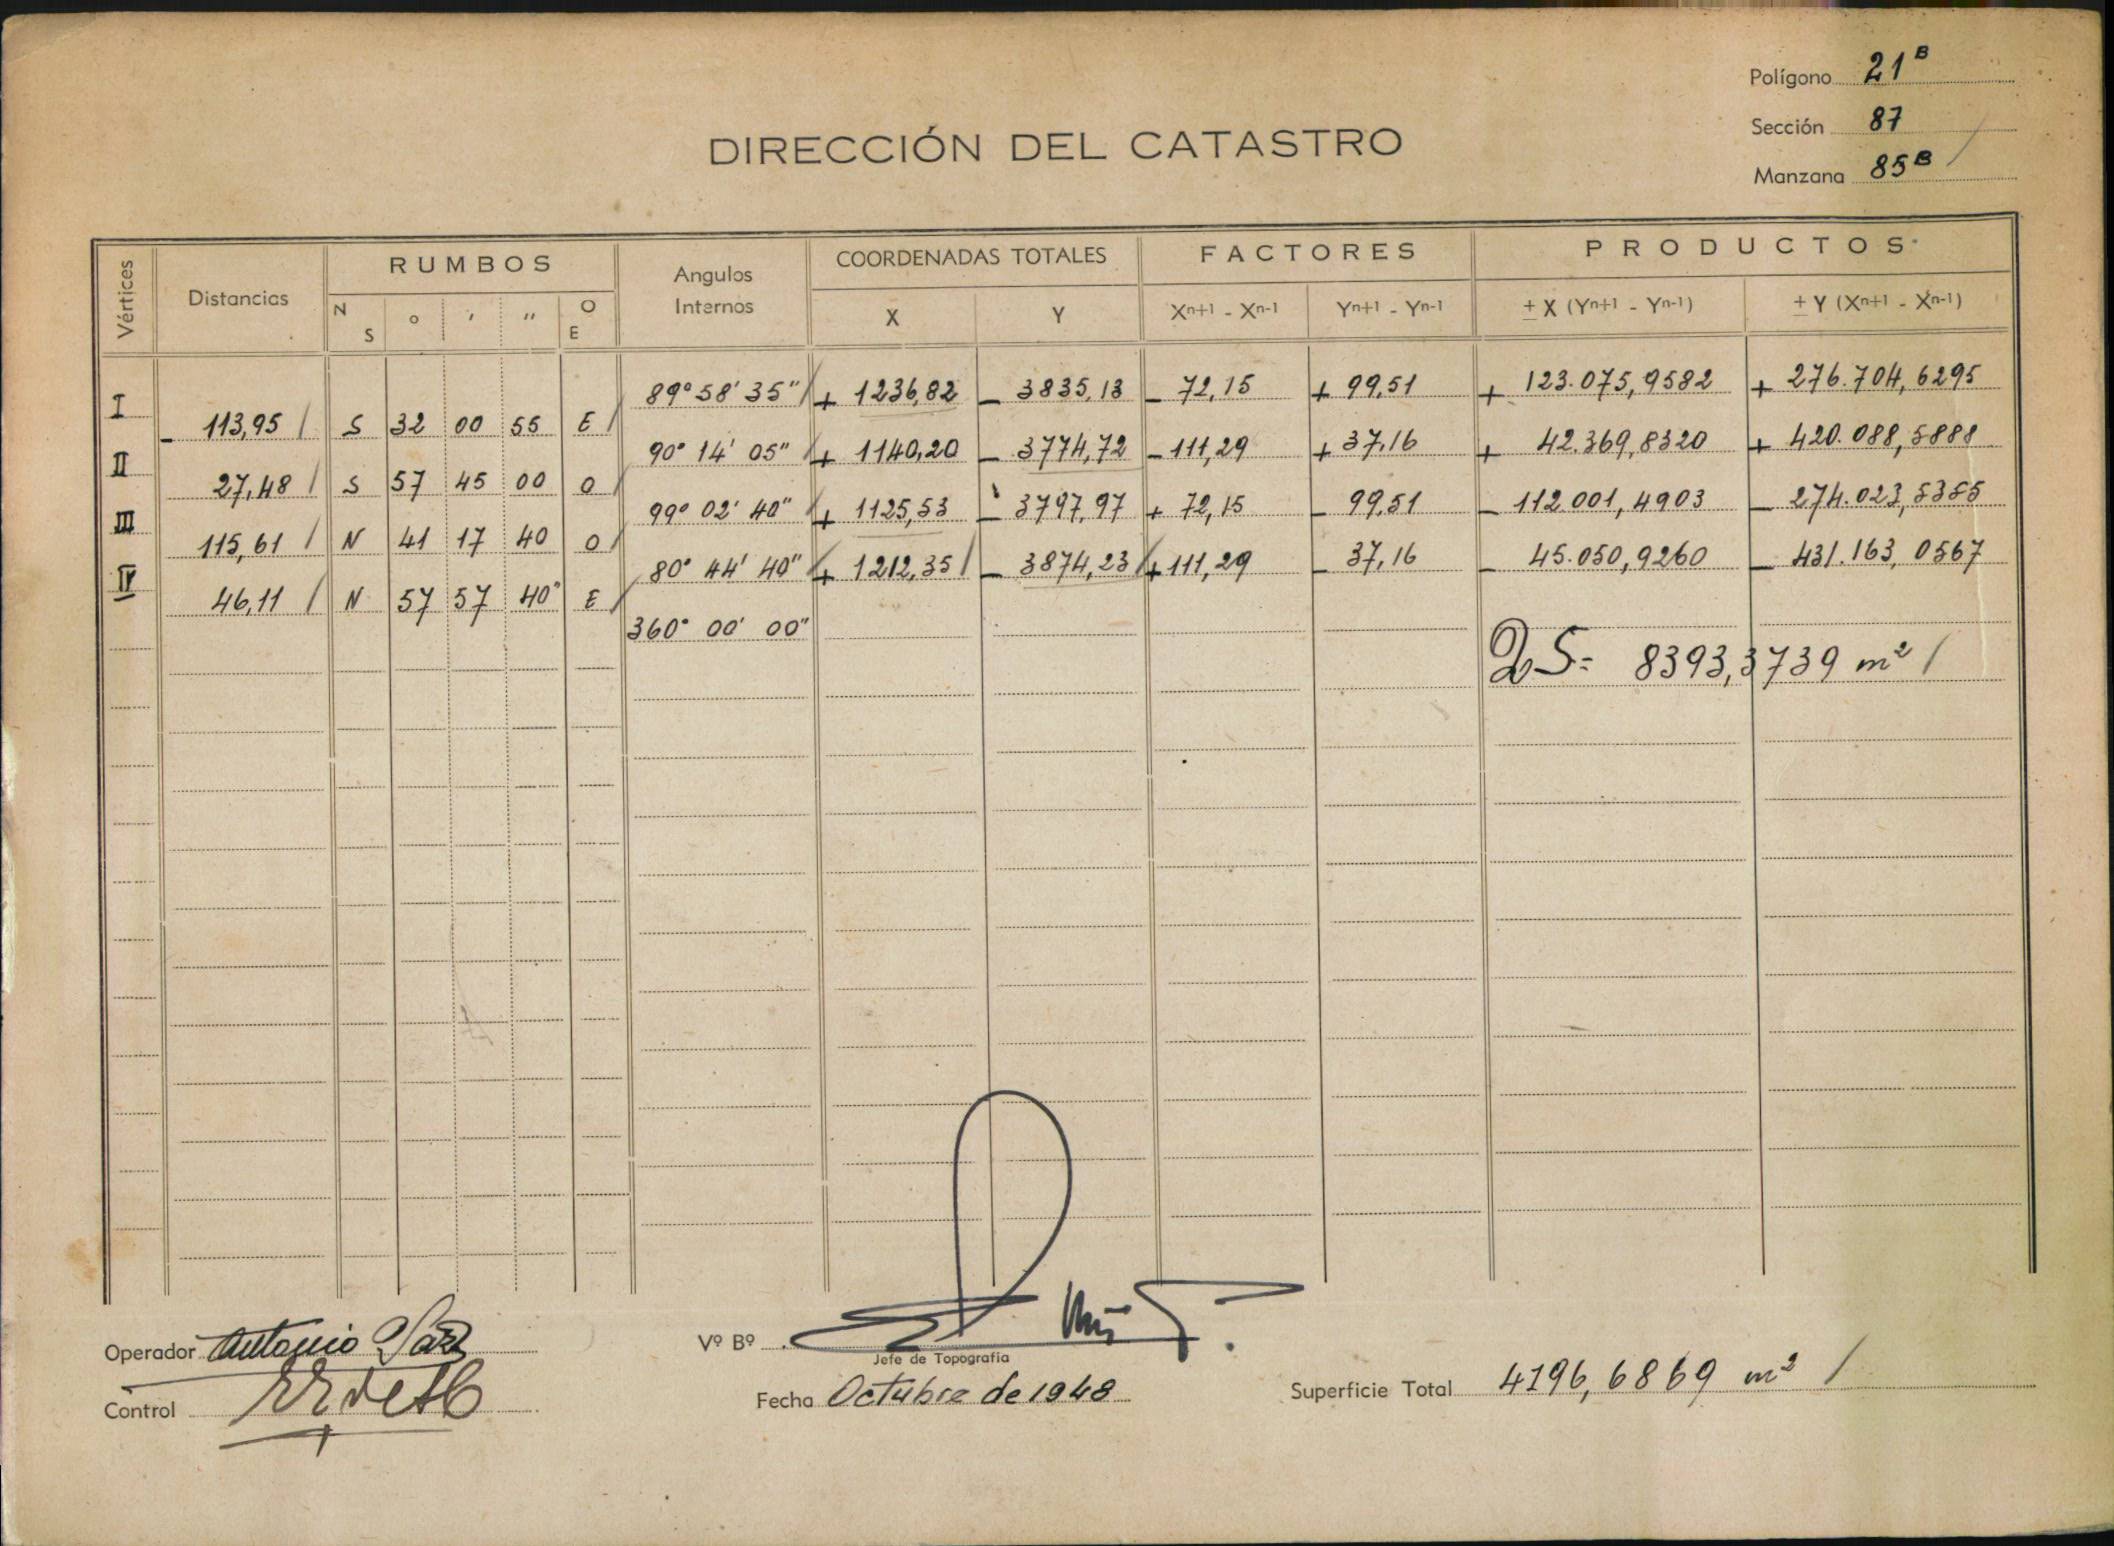 Polígono 21 B
Sección 87
Manzana 85 B /
DIRECCIÓN DEL CATASTRO
Vértices Distancias RUMBOS Angulos Internos COORDENADAS TOTALES FACTORES PRODUCTOS
N S o ' '' O E X Y Xn+1 - Xn-1 Yn+1 - Yn-1 ± X (Yn+1 - Yn-1) ± Y (Xn+1 - Xn-1)
I 89° 58' 35" / + 1236,82 - 3835,13 - 72,15 + 99,51 + 123.075,9582 + 276.704,6295
- 113,95 / S 32 00 55 E /
II 90° 14' 05" / + 1140,20 - 3774,72 - 111,29 + 37,16 + 42.369,8320 + 420.088,5888
27,48 / S 57 45 00 O /
III 99° 02' 40" / + 1125,53 - 3797,97 + 72,15 - 99,51 - 112.001,4903 - 274.023,5355
115,61 / N 41 17 40 O /
IV 80° 44' 40" / + 1212,35 / - 3874,23 / + 111,29 - 37,16 - 45.050,9260 - 431.163,0567
46,11 / N 57 57 40" E /
360° 00' 00"
2S= 8393,3739 m² /
Operador Antonio
Control
Vº Bº
Jefe de Topografía
Fecha Octubre de 1948
Superficie Total 4196,6869 m² /